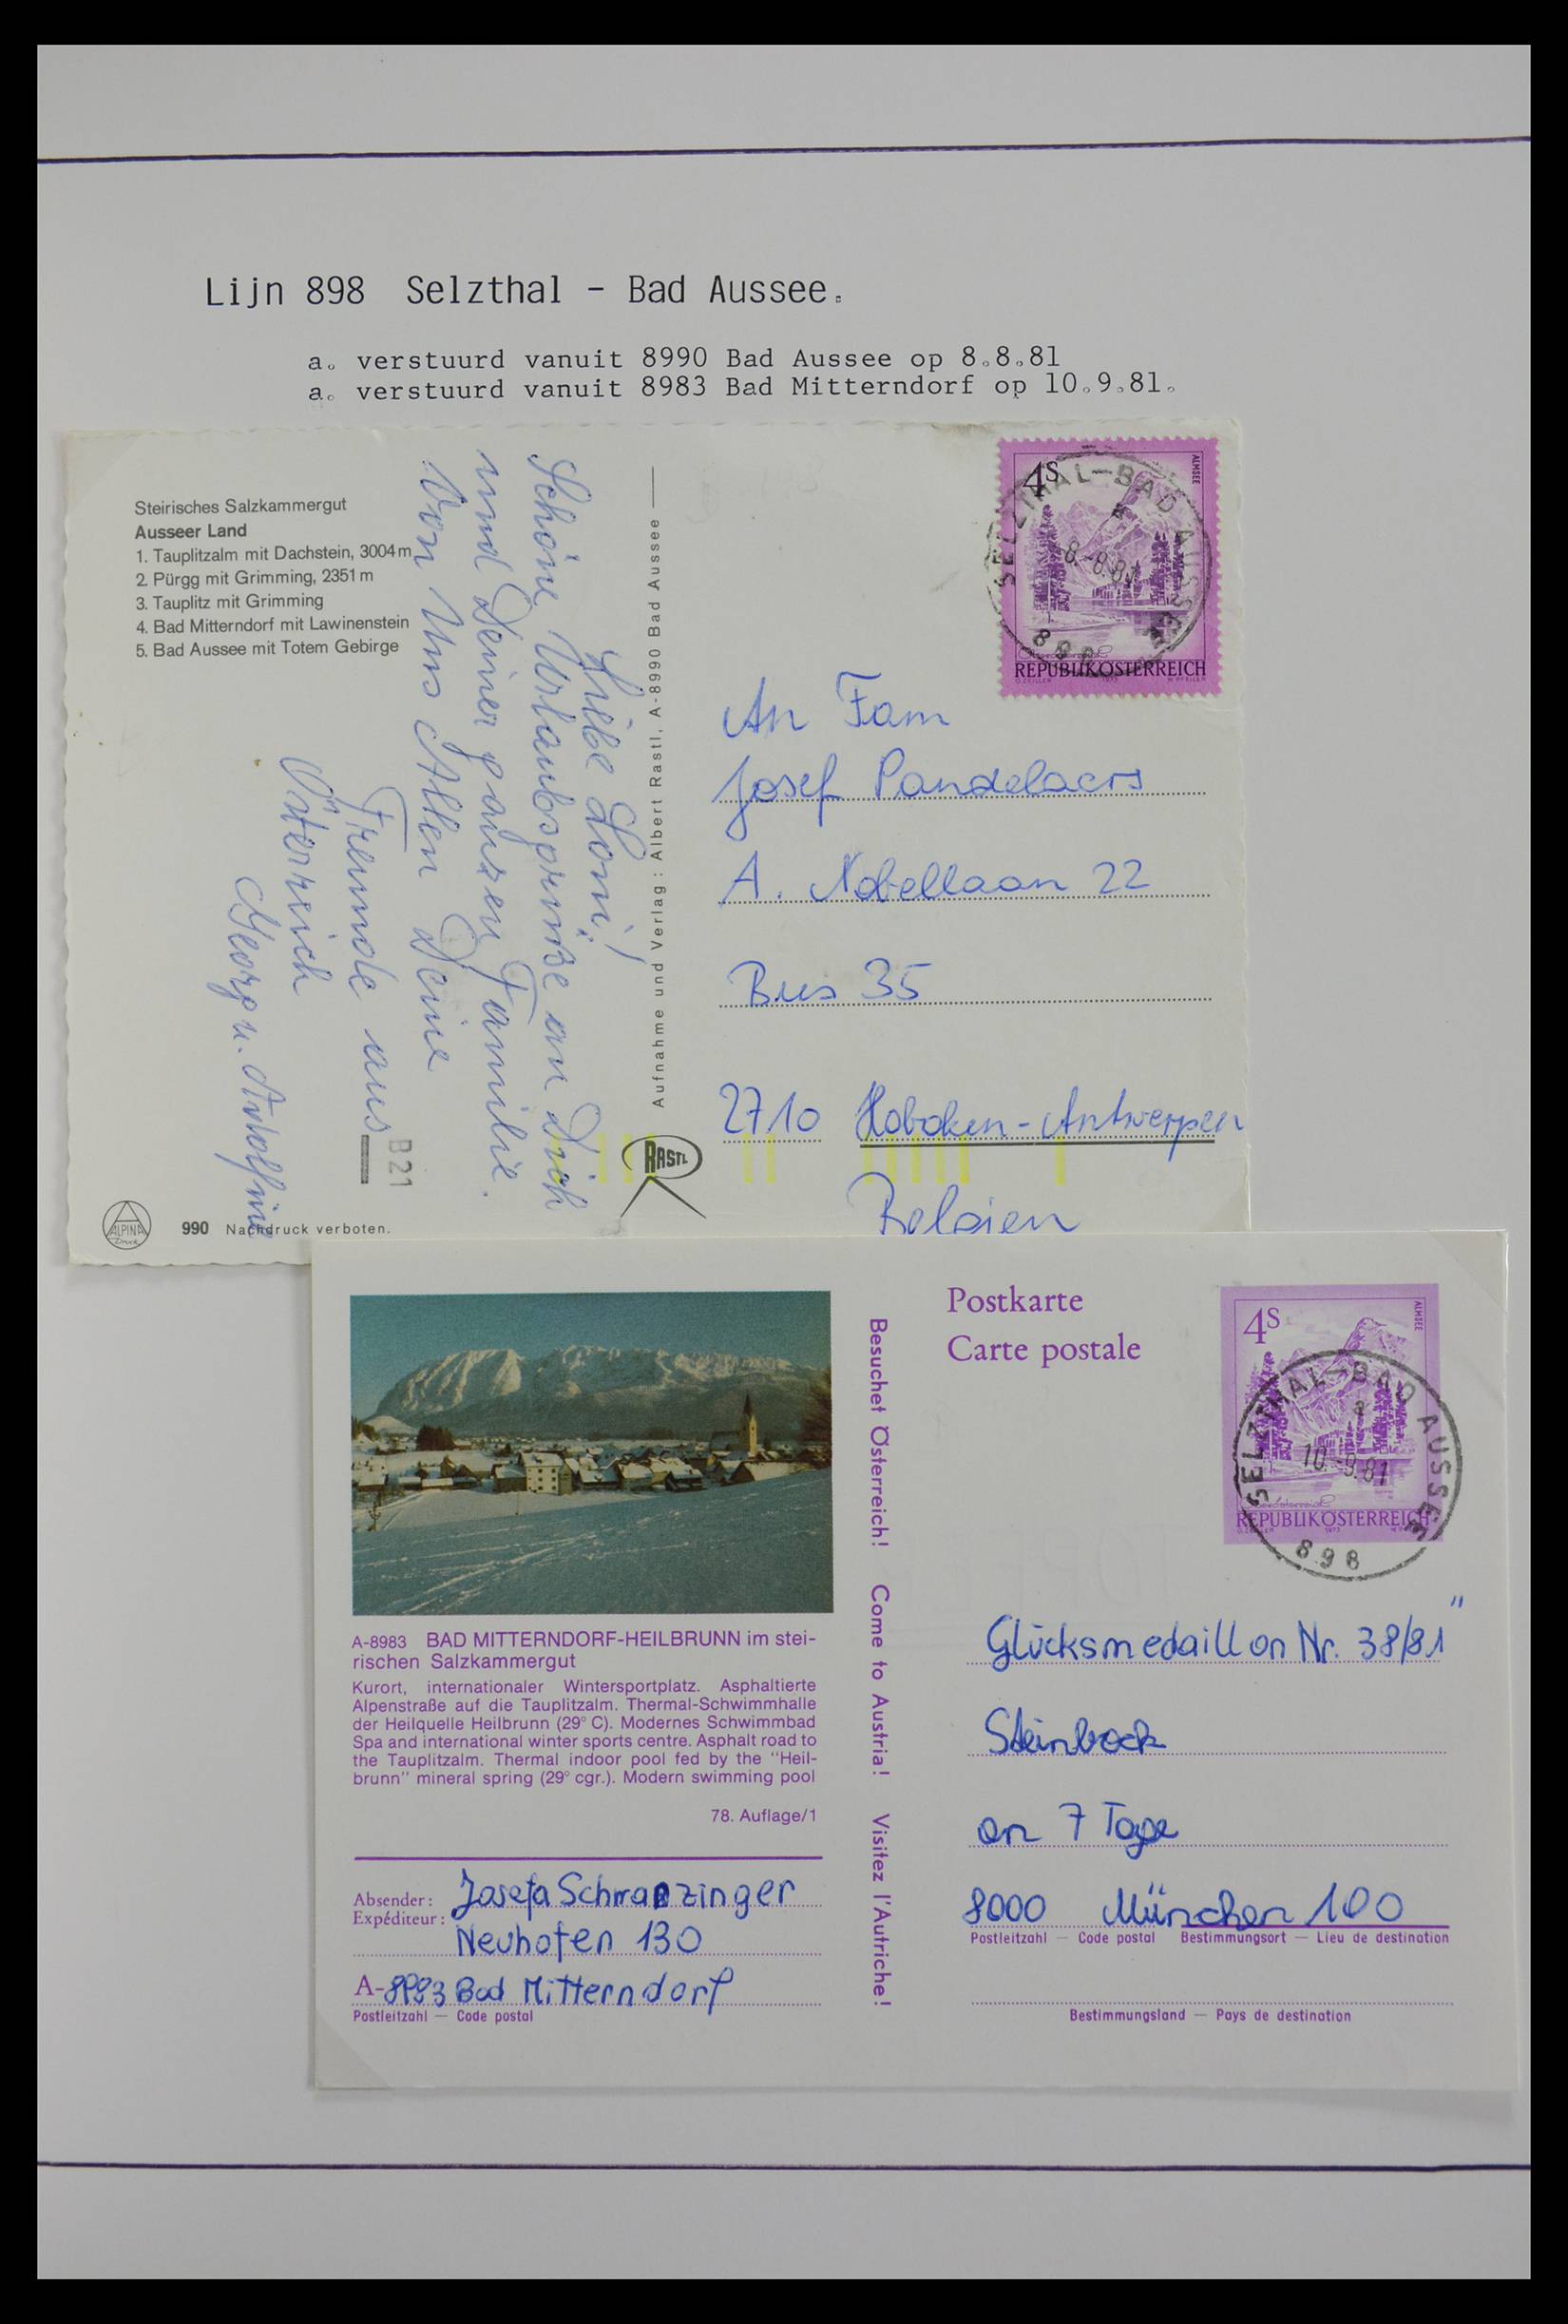 Lijn 898 Selzthal - Bad Aussee.
a. verstuurd vanuit 8990 Bad Aussee op 8.8.81
a. verstuurd vanuit 8983 Bad Mitterndorf op 10.9.81.
Steirisches Salzkammergut
Ausseer Land
1. Tauplitzalm mit Dachstein, 3004 m
2. Pürgg mit Grimming, 2351 m
3. Tauplitz mit Grimming
4. Bad Mitterndorf mit Lawinenstein
5. Bad Aussee mit Totem Gebirge
Liebe Loni!
Schöne Urlaubsgrüße an Dich
und Deiner ganzen Familie.
Von Uns Allen Deine
Freunde aus
Österreich
Georg u. Adolfine
B21
ALPINA
Druck
990 Nachdruck verboten.
Aufnahme und Verlag: Albert Rastl, A-8990 Bad Aussee
RASTL
4S
ALMSEE
SELZTHAL-BAD AUSSEE
-8.-8.81
898
REPUBLIK ÖSTERREICH
An Fam
Josef Pandelaers
A. Nobellaan 22
Bus 35
2710 Hoboken-Antwerpen
Belgien
A-8983 BAD MITTERNDORF-HEILBRUNN im stei-
rischen Salzkammergut
Kurort, internationaler Wintersportplatz. Asphaltierte
Alpenstraße auf die Tauplitzalm. Thermal-Schwimmhalle
der Heilquelle Heilbrunn (29° C). Modernes Schwimmbad
Spa and international winter sports centre. Asphalt road to
the Tauplitzalm. Thermal indoor pool fed by the "Heil-
brunn" mineral spring (29° cgr.). Modern swimming pool
78. Auflage/1
Absender:
Expéditeur:
Josefa Schwanzinger
Neuhofen 130
A-8983 Bad Mitterndorf
Postleitzahl — Code postal
Besuchet Österreich! Come to Austria! Visitez l'Autriche!
Postkarte
Carte postale
4S
ALMSEE
SELZTHAL-BAD AUSSEE
a
10.-9.81
898
REPUBLIK ÖSTERREICH
Glücksmedaillon Nr. 38/81"
Steinbock
an 7 Tage
8000 München 100
Postleitzahl — Code postal Bestimmungsort — Lieu de destination
Bestimmungsland — Pays de destination